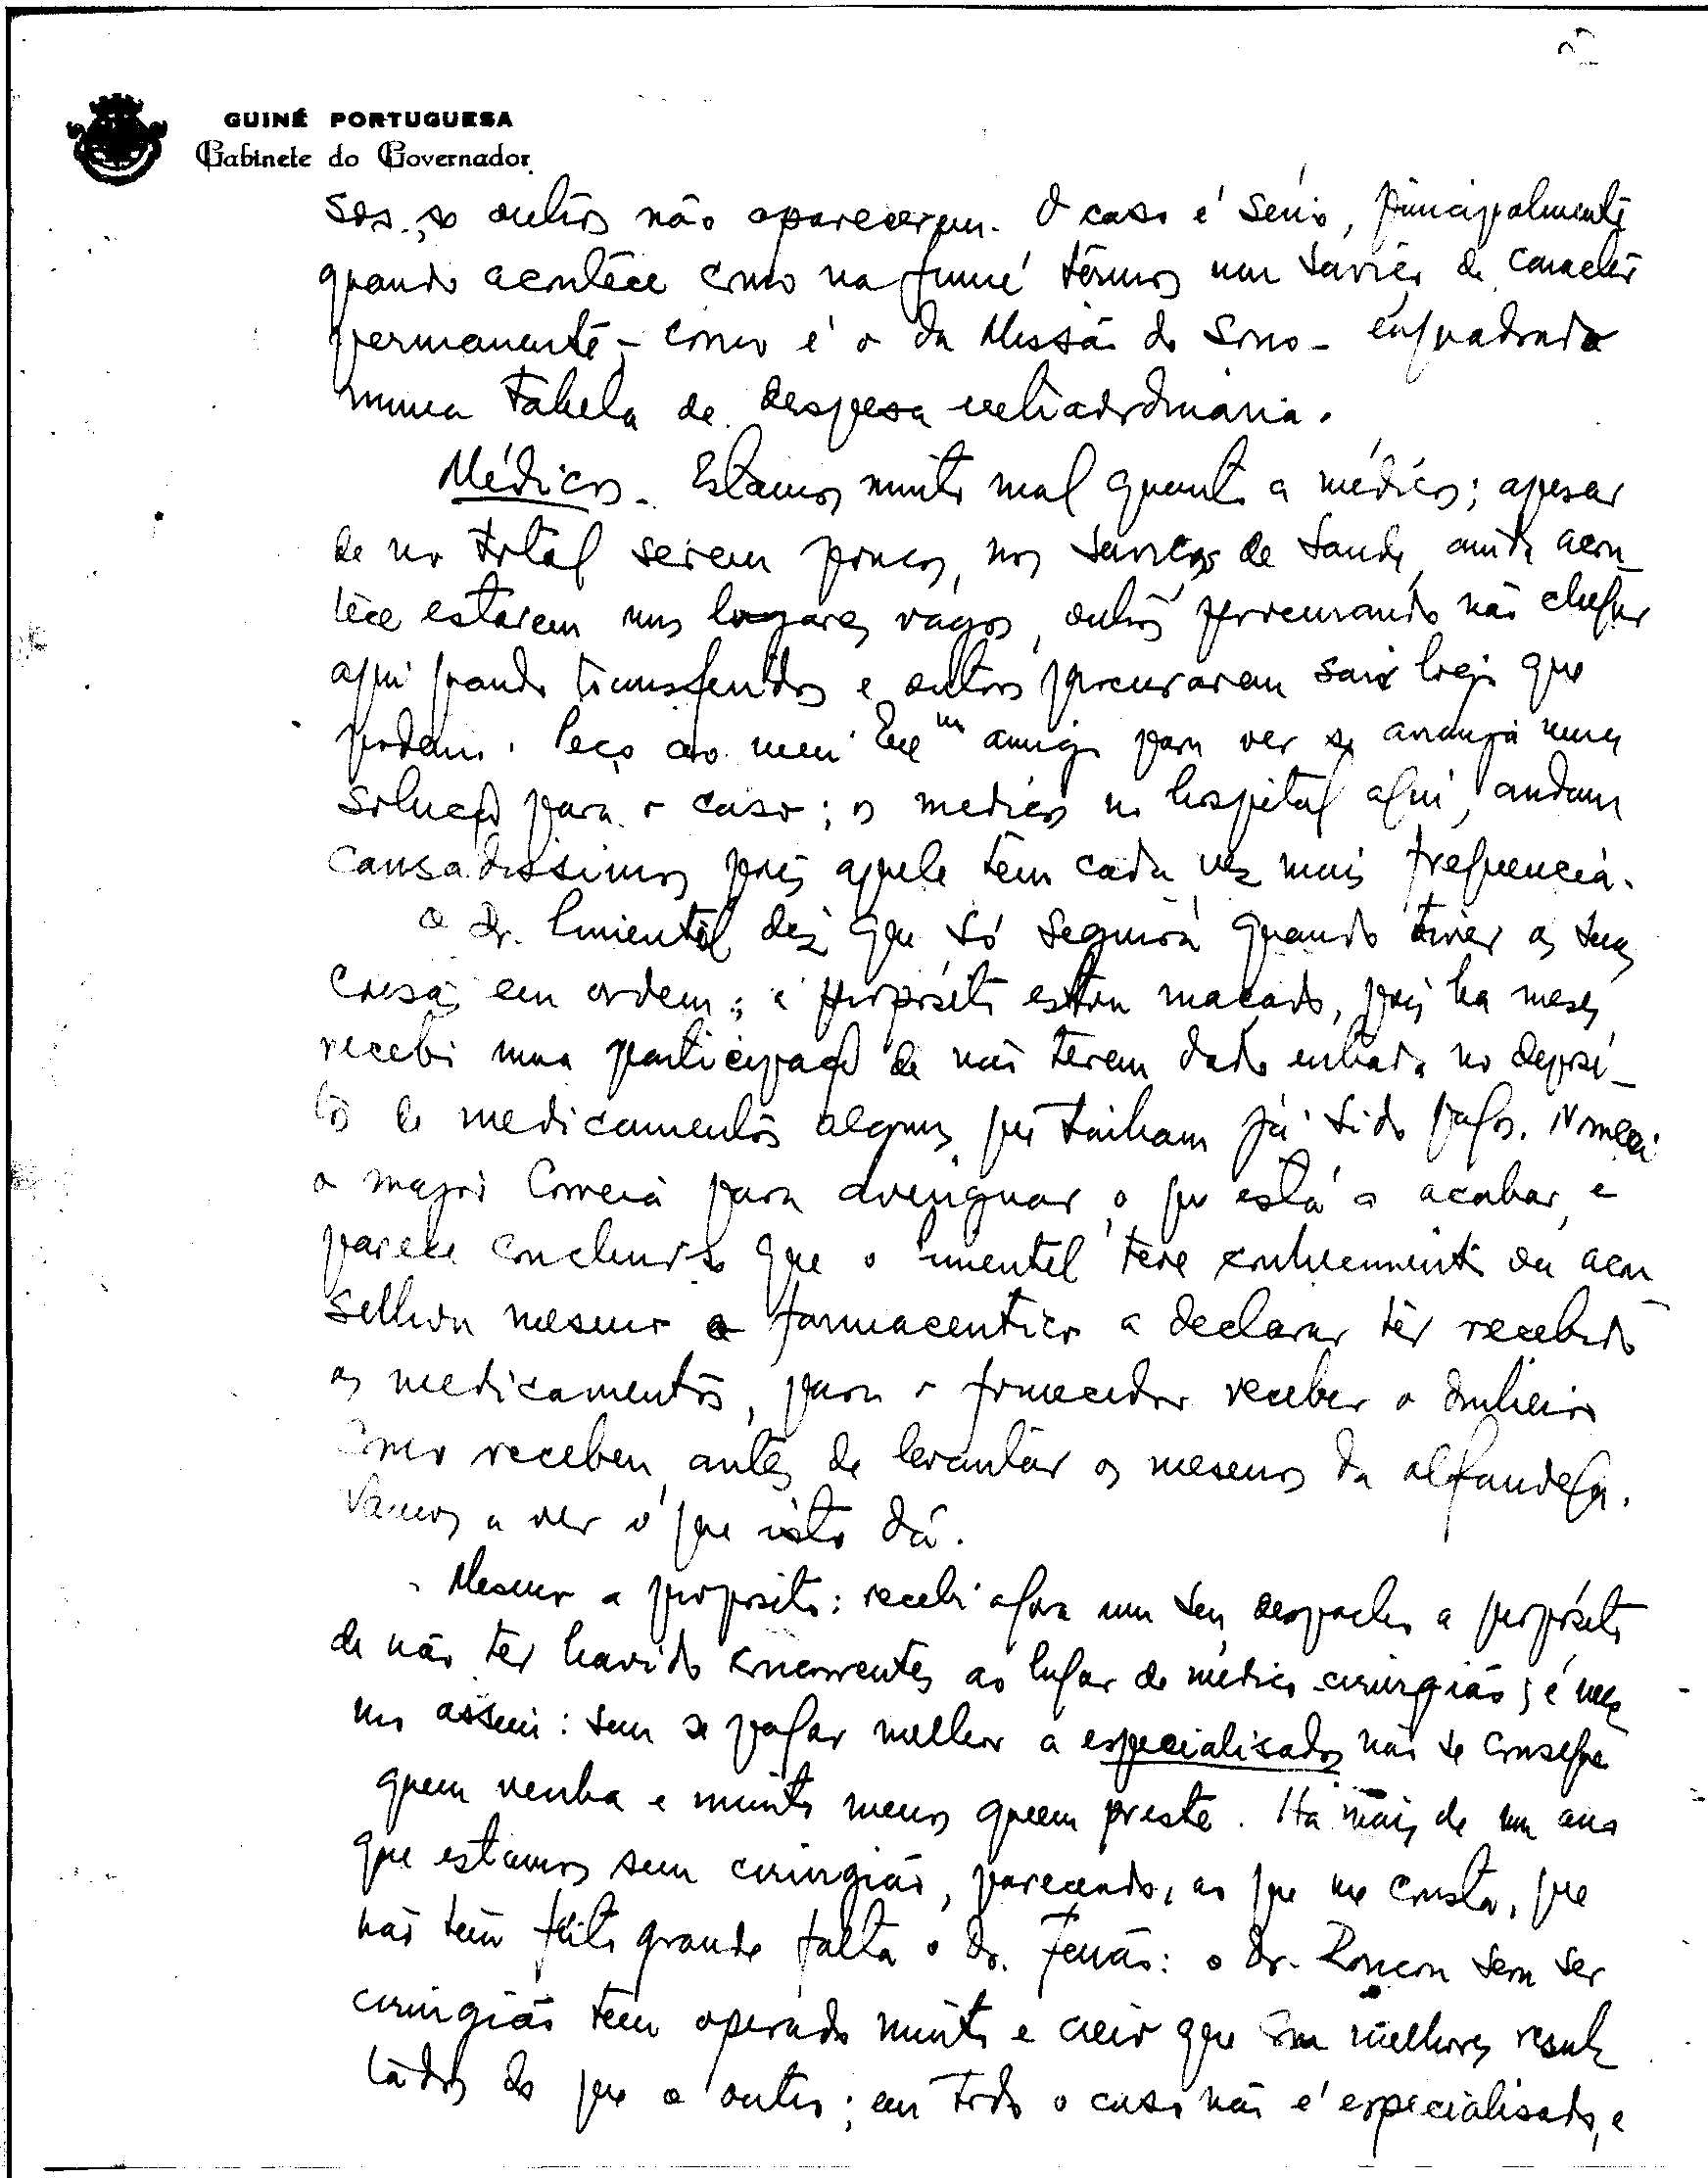 GUINÉ PORTUGUESA
Gabinete do Governador
sos, os outros não apareceram. O caso é sério, principalmente
quando acontece como na Guiné termos um serviço de caracter
permanente – como é o da Missão do Sono – enquadrado
numa tabela de despesa extraordinária.
Médicos – Estamos muito mal quanto a médicos; apesar
de no total serem poucos, nos serviços de Saude, ainda acon-
tece estarem uns lugares vagos, outros procurando não chegar
aqui quando transferidos e outros procurarem sair logo que
podem. Peço ao meu Exmº amigo para ver se arranja uma
solução para o caso; os medicos no hospital aqui, andam
cansadissimos pois aquele tem cada vez mais frequencia.
O Dr. Pimentel diz que só seguirá quando tiver as suas
coisas em ordem; a propósito estou maçado, pois ha meses
recebi uma participação de não terem dado entrada no deposi-
to de medicamentos alguns que tinham já sido pagos. Nomeei
o major Correia para averiguar, o que está a acabar, e
parece concluir-se que o Pimentel teve conhecimento ou acon
selhou mesmo o farmaceutico a declarar ter recebido
os medicamentos, para o fornecedor receber o dinheiro
como recebeu, antes de levantar os mesmos da alfandega.
Vamos a ver o que isto dá.
Mesmo a proposito: recebi agora um seu despacho a propósito
de não ter havido concorrentes ao lugar de médico-cirurgião; é mes
mo assim: sem se pagar melhor a especialisados não se consegue
quem venha e muito menos quem preste. Há mais de um ano
que estamos sem cirurgião, parecendo, ao que me consta, que
não tem feito grande falta o Dr. Ferrão: o Dr. Roncon sem ser
cirurgião tem operado muito e creio que com melhores resul
tados do que o outro; em todo o caso não é especialisado, e